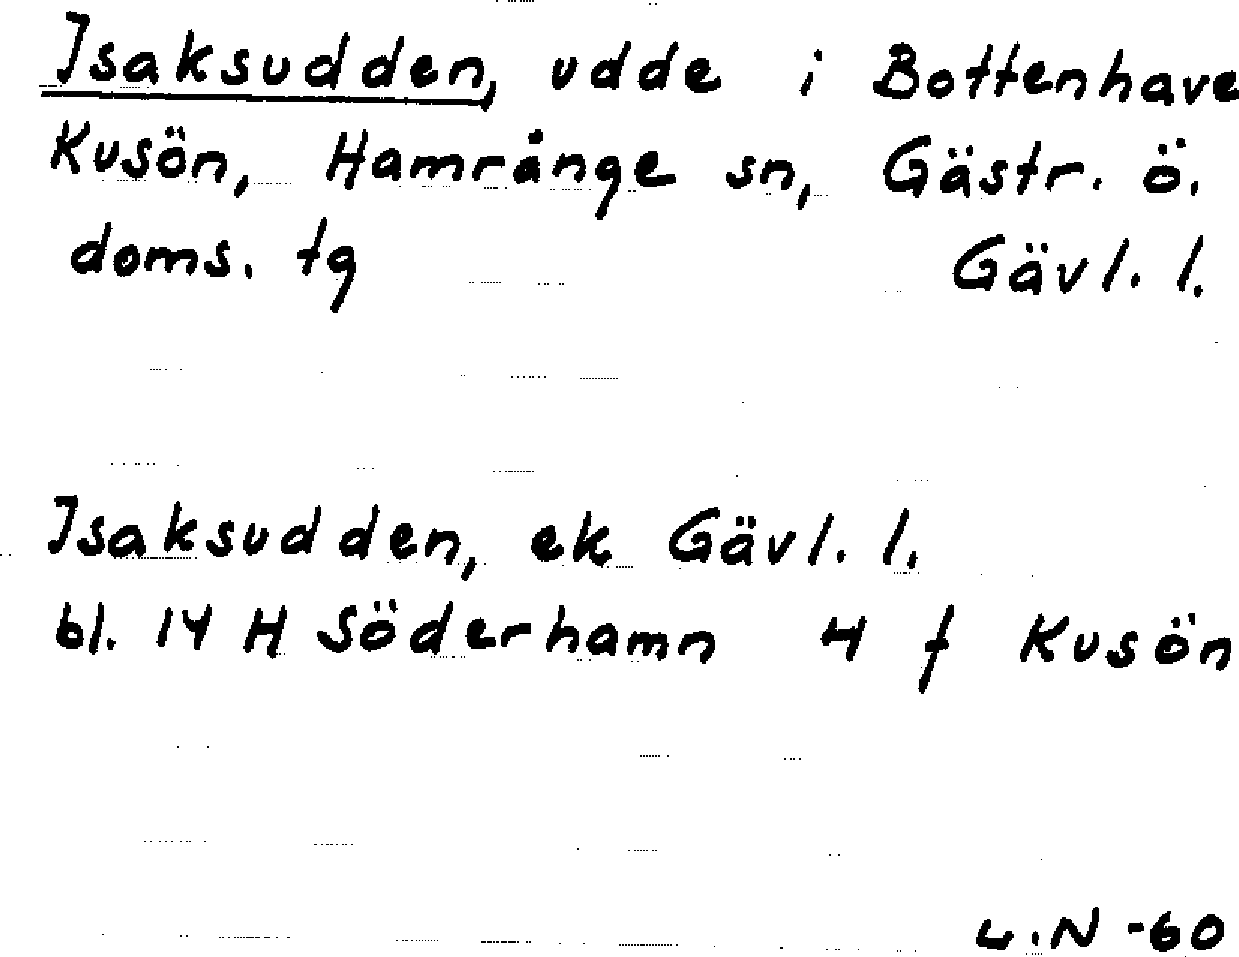 Isaksudden, udde i Bottenhave
Kusön, Hamrånge sn, Gästr. ö.
doms. tg Gävl. l.
Isaksudden, ek Gävl. l.
bl. 14 H Söderhamn 4 f Kusön
L.N -60